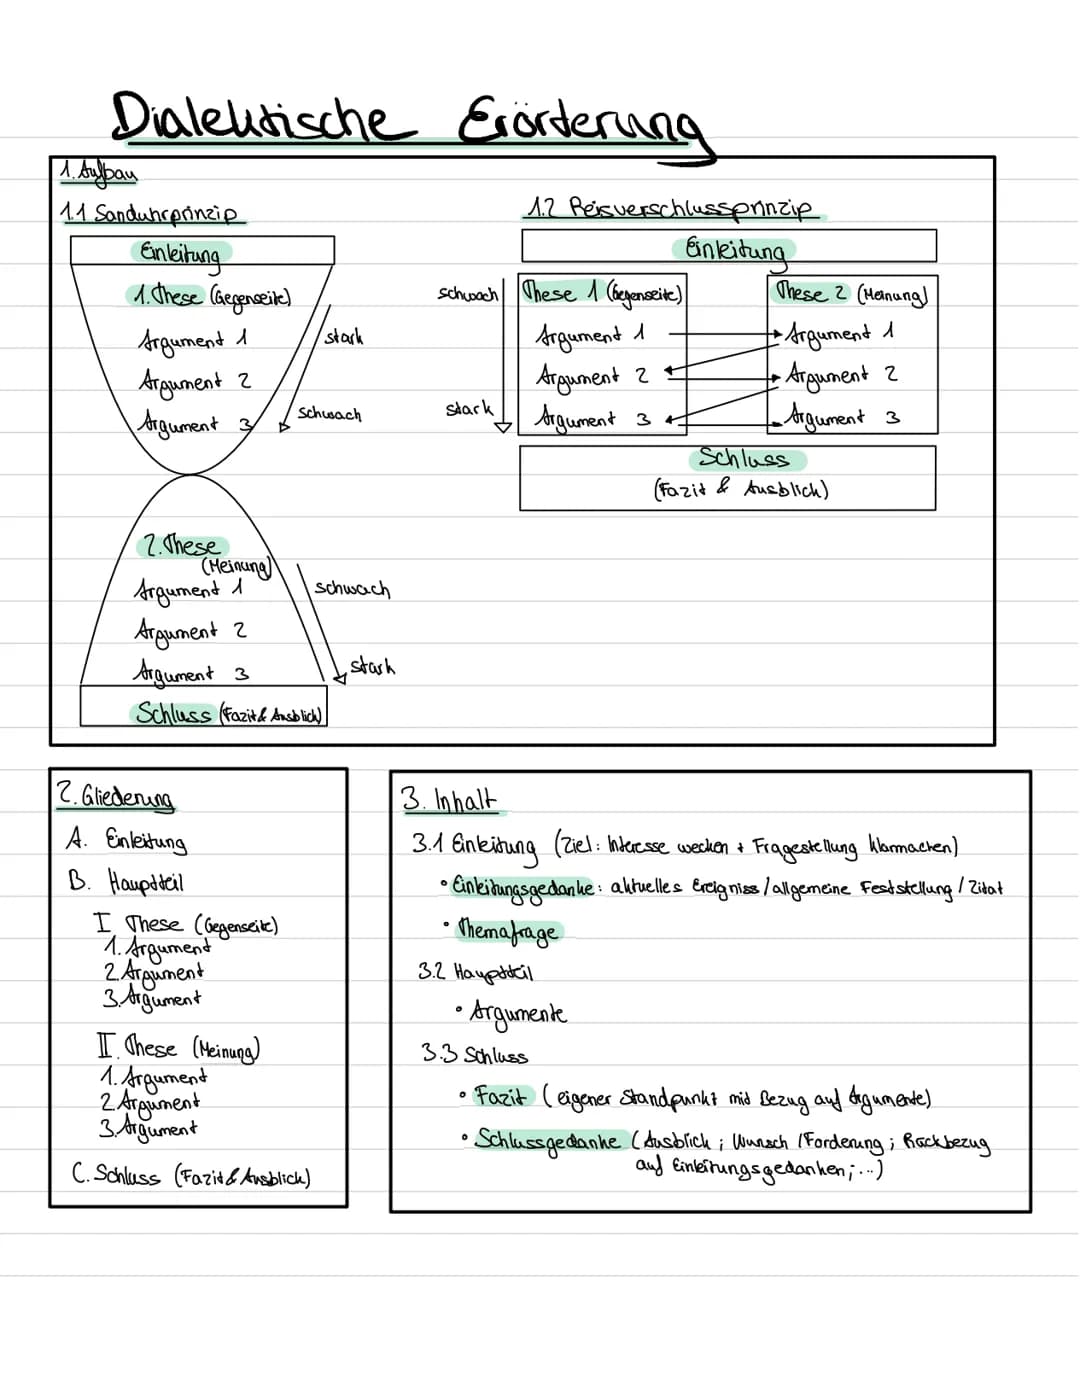 Dialektische Erörterung
1. Aufbau
1.1 Sanduhrprinzip
Einleitung
1. These (Gegenseite)
Argument 1
stark
Argument 2
Argument 3
schwach
2. These
(Meinung)
Argument 1
schwach
Argument 2
Argument 3
stark
Schluss (Fazit & Ausblick)
1.2 Reisverschlussprinzip
Einleitung
schwach
These 1 (Gegenseite)
These 2 (Meinung)
Argument 1
Argument 1
Argument 2
Argument 2
stark
Argument 3
Argument 3
Schluss
(Fazit & Ausblick)
2. Gliederung
A. Einleitung
B. Hauptteil
I These (Gegenseite)
1. Argument
2. Argument
3. Argument
II. These (Meinung)
1. Argument
2 Argument
3. Argument
C. Schluss (Fazit & Ausblick)
3. Inhalt
3.1 Einleitung (Ziel: Interesse wecken + Fragestellung klarmachen)
• Einleitungsgedanke: aktuelles Ereigniss / allgemeine Feststellung / Zitat
• Themafrage
3.2 Hauptteil
• Argumente
3.3 Schluss
• Fazit (eigener Standpunkt mit Bezug auf Argumente)
• Schlussgedanke (Ausblick; Wunsch / Forderung; Rückbezug
auf Einleitungsgedanken; ...)